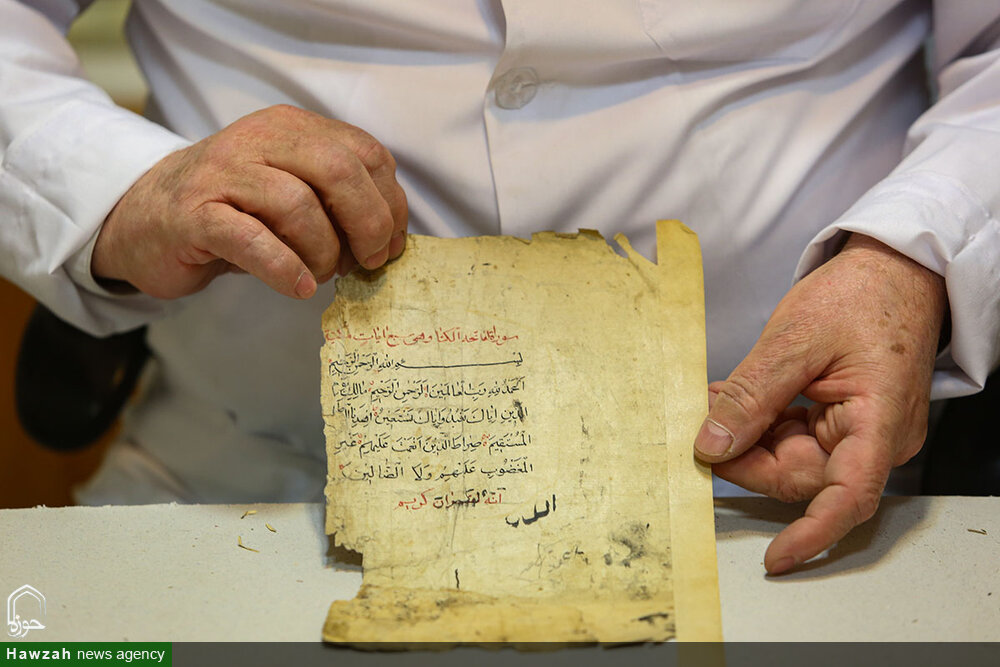 سورة فاتحة الكتا وهى سبع ايات
بسم الله الرحمن الرحيم
الحمد لله رب العالمين الرحمن الرحيم مالك
الدين اياك نعبد واياك نستعين اهدنا
المستقيم صراط الذين انعمت عليهم غير
المغضوب عليهم ولا الضالين
انه لقران كريم
حوزه
Hawzah news agency